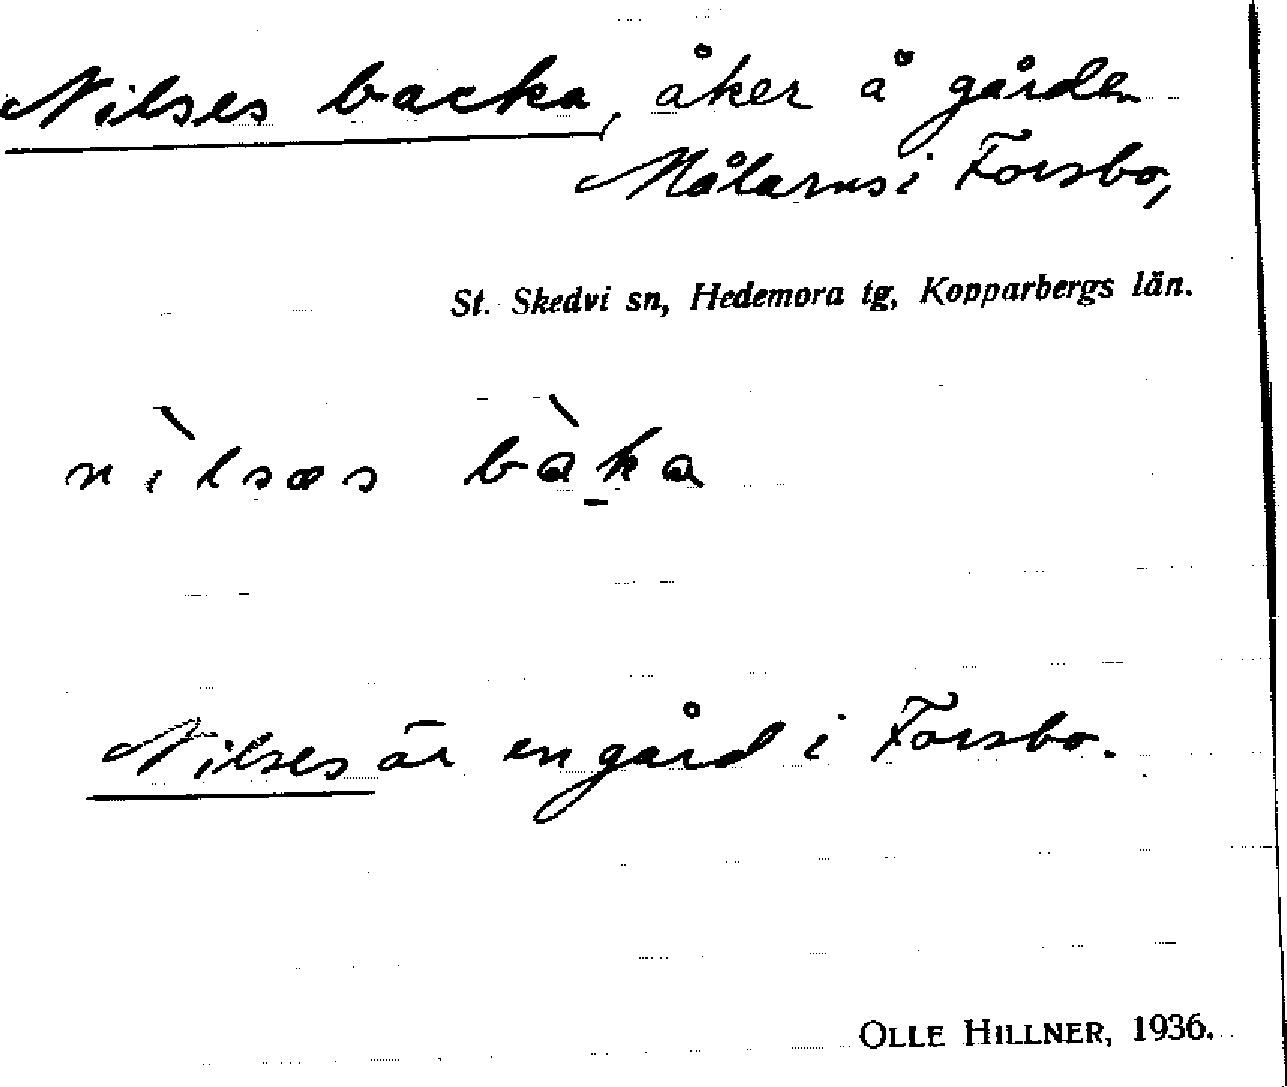 Nilses backa, åker å gården
Målarns i Forsbo,
St. Skedvi sn, Hedemora tg, Kopparbergs län.
nìlsæs bàk̠a
Nilses är en gård i Forsbo.
OLLE HILLNER, 1936.